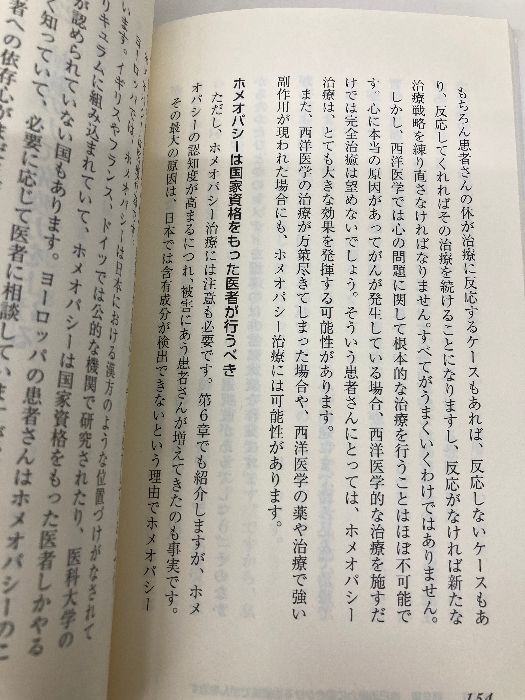 もちろん患者さんの体が治療に反応するケースもあれば、反応しないケースもあ
り、反応してくれればその治療を続けることになりますし、反応がなければ新たな
治療戦略を練り直さなければなりません。すべてがうまくいくわけではありません。
しかし、西洋医学では心の問題に関して根本的な治療を行うことはほぼ不可能で
す。心に本当の原因があってがんが発生している場合、西洋医学的な治療を施すだ
けでは完全治癒は望めないでしょう。そういう患者さんにとっては、ホメオパシー
治療は、とても大きな効果を発揮する可能性があります。
また、西洋医学の治療が万策尽きてしまった場合や、西洋医学の薬や治療で強い
副作用が現われた場合にも、ホメオパシー治療には可能性があります。
ホメオパシーは国家資格をもった医者が行うべき
ただし、ホメオパシー治療には注意も必要です。第6章でも紹介しますが、ホメ
オパシーの認知度が高まるにつれ、被害にあう患者さんが増えてきたのも事実です。
その最大の原因は、日本では含有成分が検出できないという理由でホメオパシー
154
ヨーロッパでは、ホメオパシーは日本における漢方のような位置づけがなされて
います。イギリスやフランス、ドイツでは公的な機関で研究されたり、医科大学の
リキュラムに組み込まれていて、ホメオパシーは国家資格をもった医者しかやる
が認められてない国もあります。ヨーロッパの患者さんはホメオパシーのこ
く知っていて、必要に応じて医者に相談しています
者への依存心が